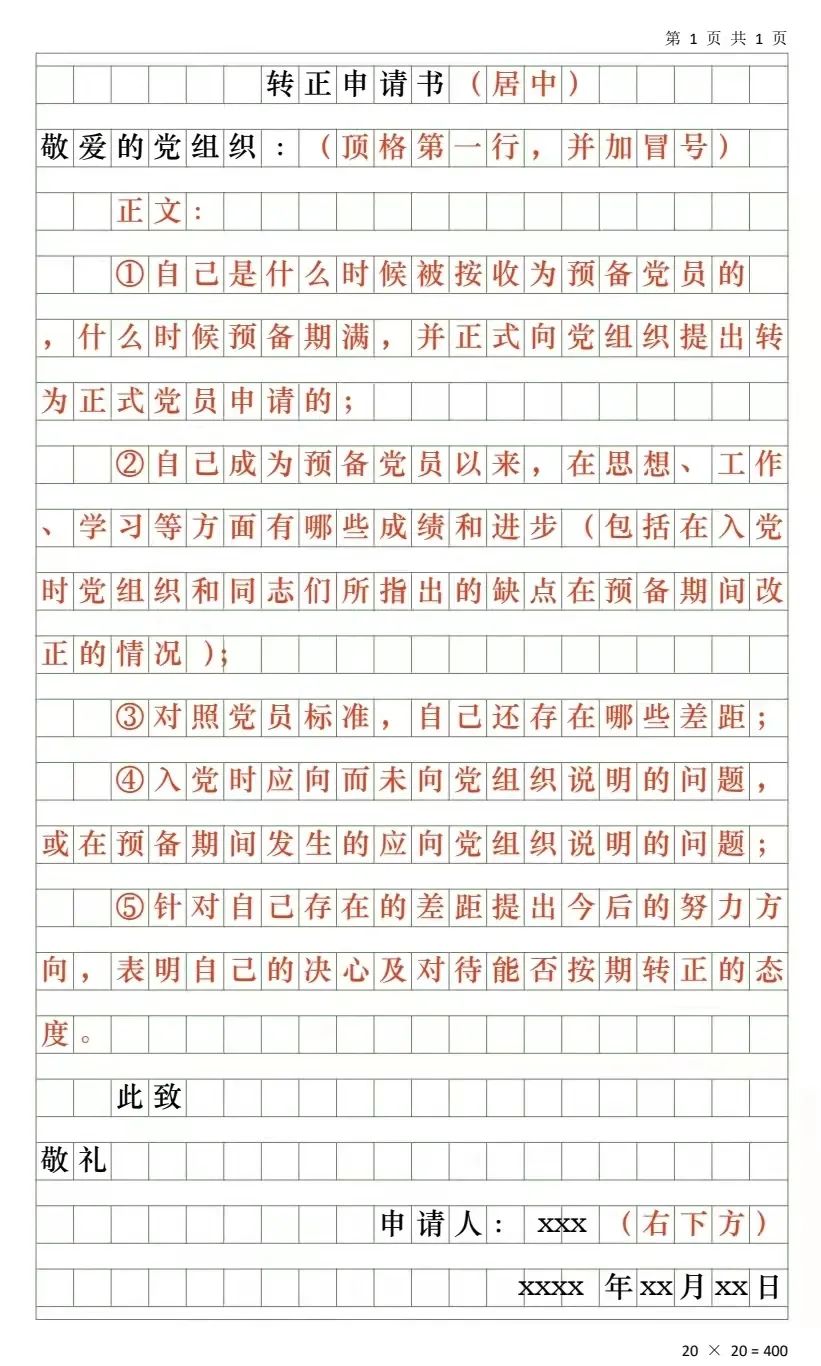 第 1 页 共 1 页
转正申请书（居中）
敬爱的党组织：（顶格第一行，并加冒号）
正文：
①自己是什么时候被按收为预备党员的
，什么时候预备期满，并正式向党组织提出转
为正式党员申请的；
②自己成为预备党员以来，在思想、工作
、学习等方面有哪些成绩和进步（包括在入党
时党组织和同志们所指出的缺点在预备期间改
正的情况）；
③对照党员标准，自己还存在哪些差距；
④入党时应向而未向党组织说明的问题，
或在预备期间发生的应向党组织说明的问题；
⑤针对自己存在的差距提出今后的努力方
向，表明自己的决心及对待能否按期转正的态
度。
此致
敬礼
申请人：xxx（右下方）
xxxx 年xx月xx日
20 × 20 = 400